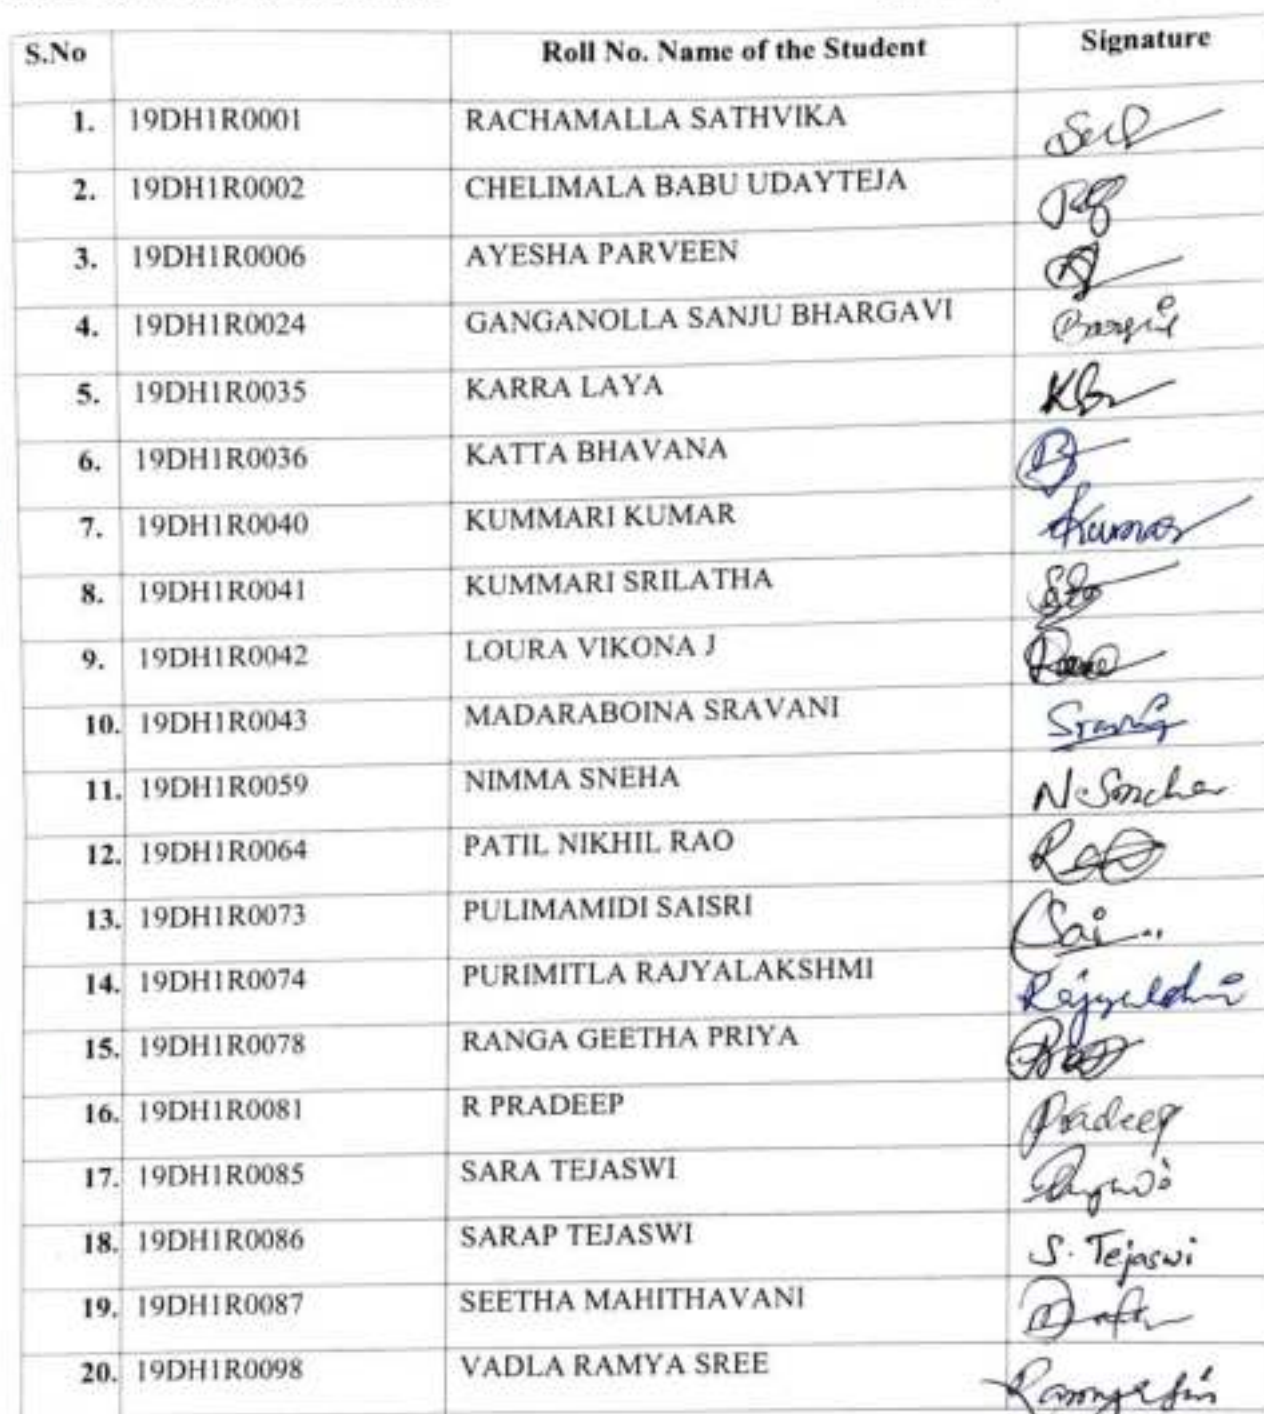 S.No Roll No. Name of the Student Signature
1. 19DH1R0001 RACHAMALLA SATHVIKA
2. 19DH1R0002 CHELIMALA BABU UDAYTEJA
3. 19DH1R0006 AYESHA PARVEEN
4. 19DH1R0024 GANGANOLLA SANJU BHARGAVI
5. 19DH1R0035 KARRA LAYA
6. 19DH1R0036 KATTA BHAVANA
7. 19DH1R0040 KUMMARI KUMAR Kumar
8. 19DH1R0041 KUMMARI SRILATHA
9. 19DH1R0042 LOURA VIKONA J
10. 19DH1R0043 MADARABOINA SRAVANI
11. 19DH1R0059 NIMMA SNEHA
12. 19DH1R0064 PATIL NIKHIL RAO Rao
13. 19DH1R0073 PULIMAMIDI SAISRI Sai..
14. 19DH1R0074 PURIMITLA RAJYALAKSHMI
15. 19DH1R0078 RANGA GEETHA PRIYA
16. 19DH1R0081 R PRADEEP Pradeep
17. 19DH1R0085 SARA TEJASWI
18. 19DH1R0086 SARAP TEJASWI S. Tejaswi
19. 19DH1R0087 SEETHA MAHITHAVANI
20. 19DH1R0098 VADLA RAMYA SREE